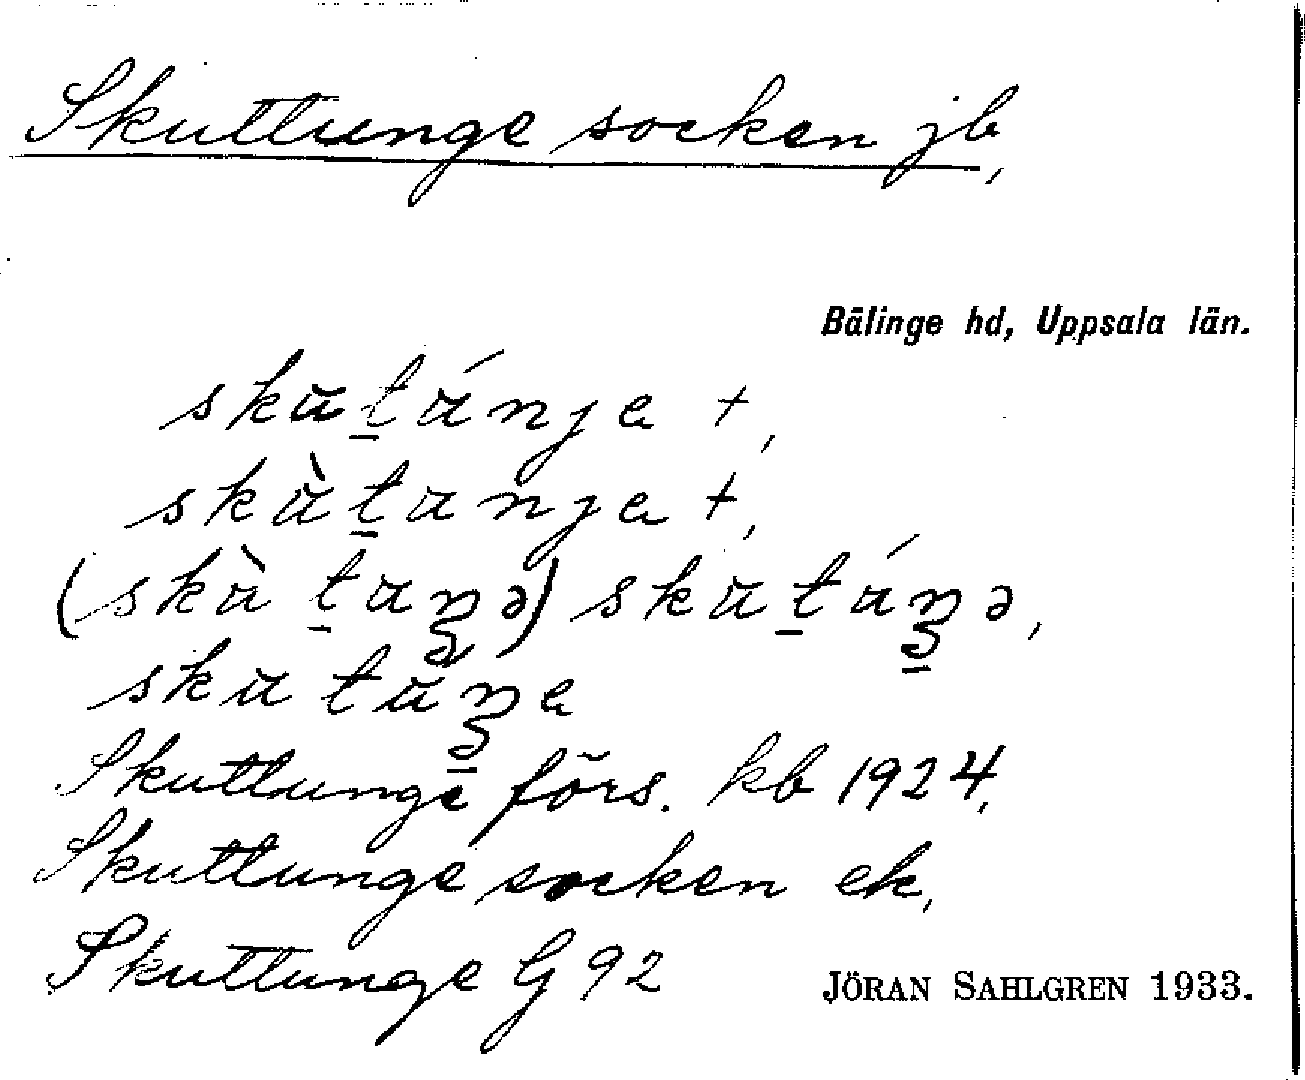 Skuttunge socken jb,
Bälinge hd, Uppsala län.
skut̠únje +,
skùt̠unje +,
(skùt̠uŋə) skut̠úŋə,
skutuŋe
Skuttunge förs. kb 1924,
Skuttunge socken ek,
Skuttunge G 92
JÖRAN SAHLGREN 1933.